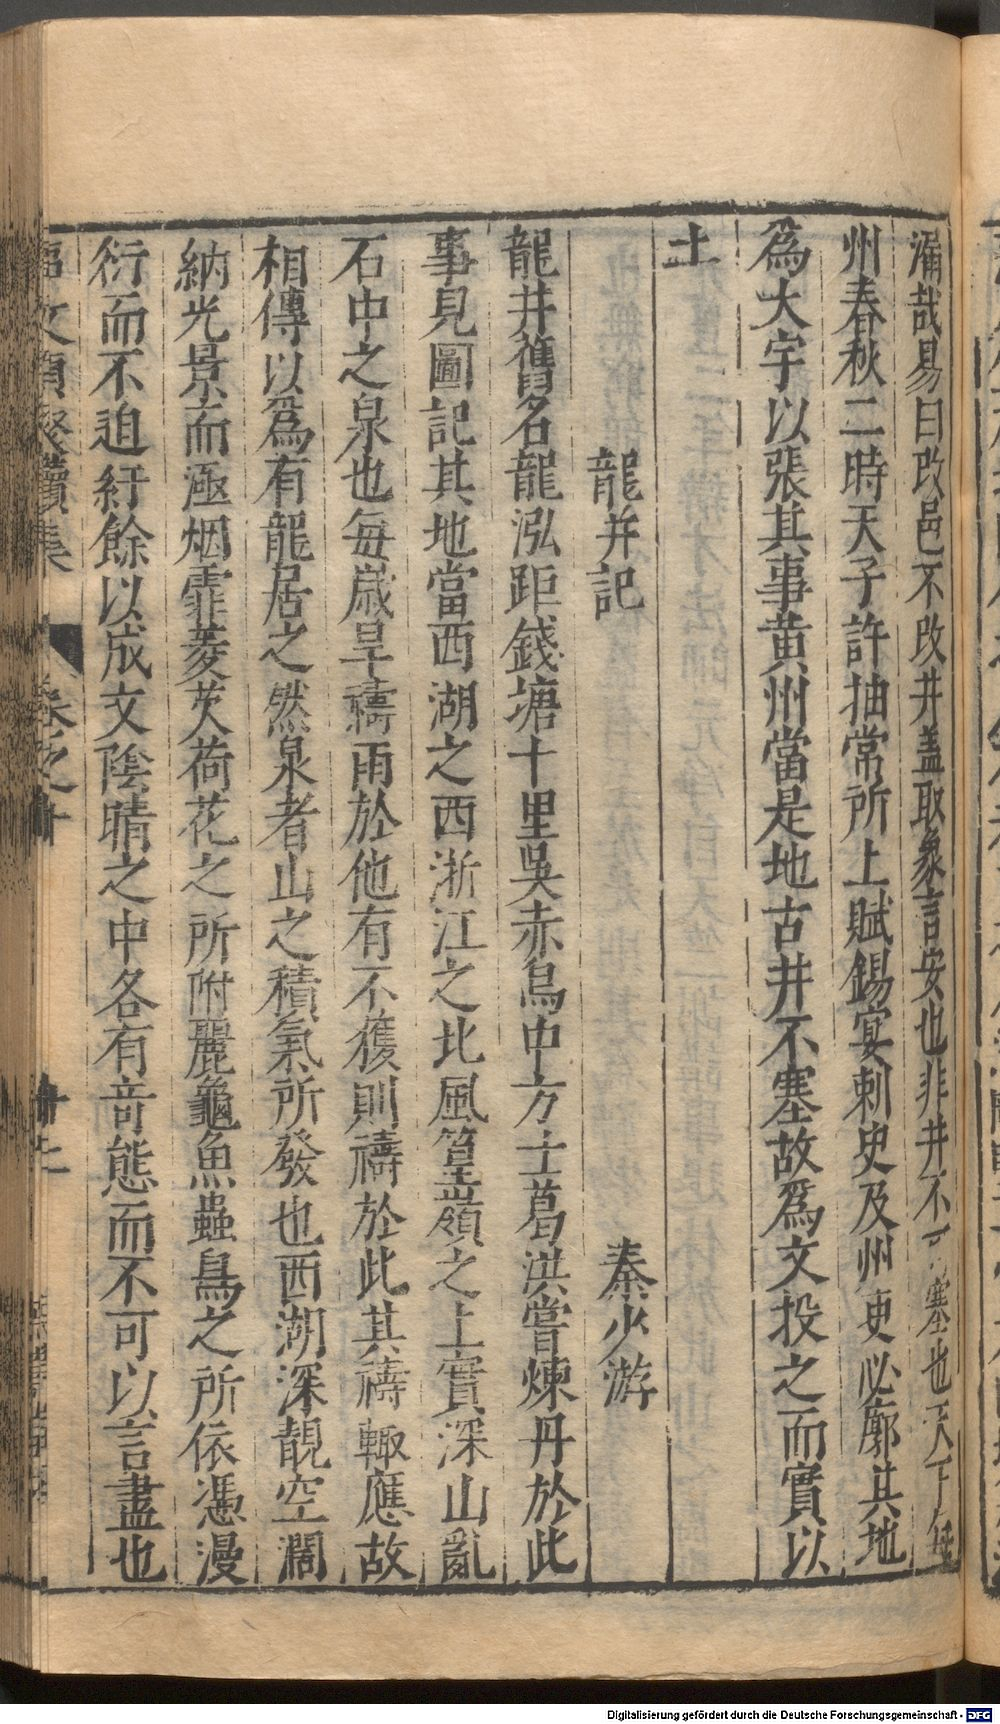 滿哉易曰改邑不改井盖取象言安也非井不可塞也天下
州春秋二時天子許抽常所上賦錫宴刺史及州吏必廓其地
爲大宇以張其事黄州當是地古井不塞故爲文投之而實以
土
龍井記 秦少游
龍井舊名龍泓距錢塘十里吳赤烏中方士葛洪嘗煉丹於此
事見圖記其地當西湖之西浙江之北風篁嶺之上實深山亂
石中之泉也每歲旱禱雨於他有不獲則禱於此其禱輙應故
相傳以爲有龍居之然泉者山之積氣所發也西湖深靚空濶
納光景而涵烟霏菱芡荷花之所附麗龜魚蟲鳥之所依憑漫
衍而不迫紆餘以成文陰晴之中各有竒態而不可以言盡也
文類聚續集 卷之十
Digitalisierung gefördert durch die Deutsche Forschungsgemeinschaft - DFG